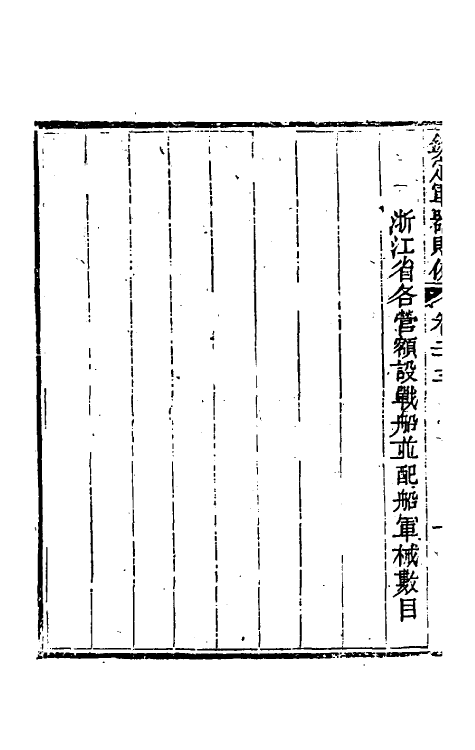 欽定軍器則例 卷二十三
浙江省各營額設戰船並配船軍械數目